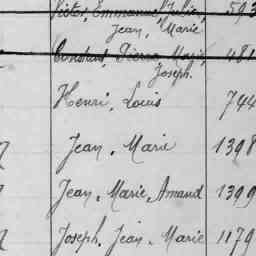 Victor, Emmanuel, Julien, 593
Jean, Marie
Constant, Pierre, Marie, 481
Joseph.
Henri, Louis 744
Jean, Marie 1398
Jean, Marie, Amand 1399
Joseph, Jean, Marie 1179